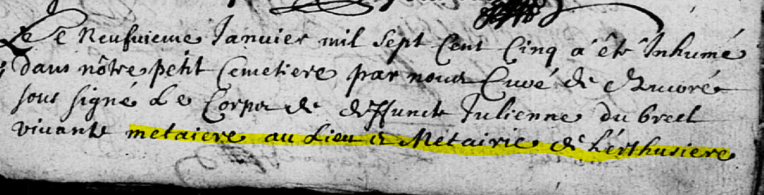 Le Neufvieme Janvier mil Sept Cent Cinq a êté Inhumé
dans nôtre petit Cemetiere par nous Curé de
sous signé Le Corps de deffuncte Julienne du breil
vivante metaiere au Lieu & Metairie de